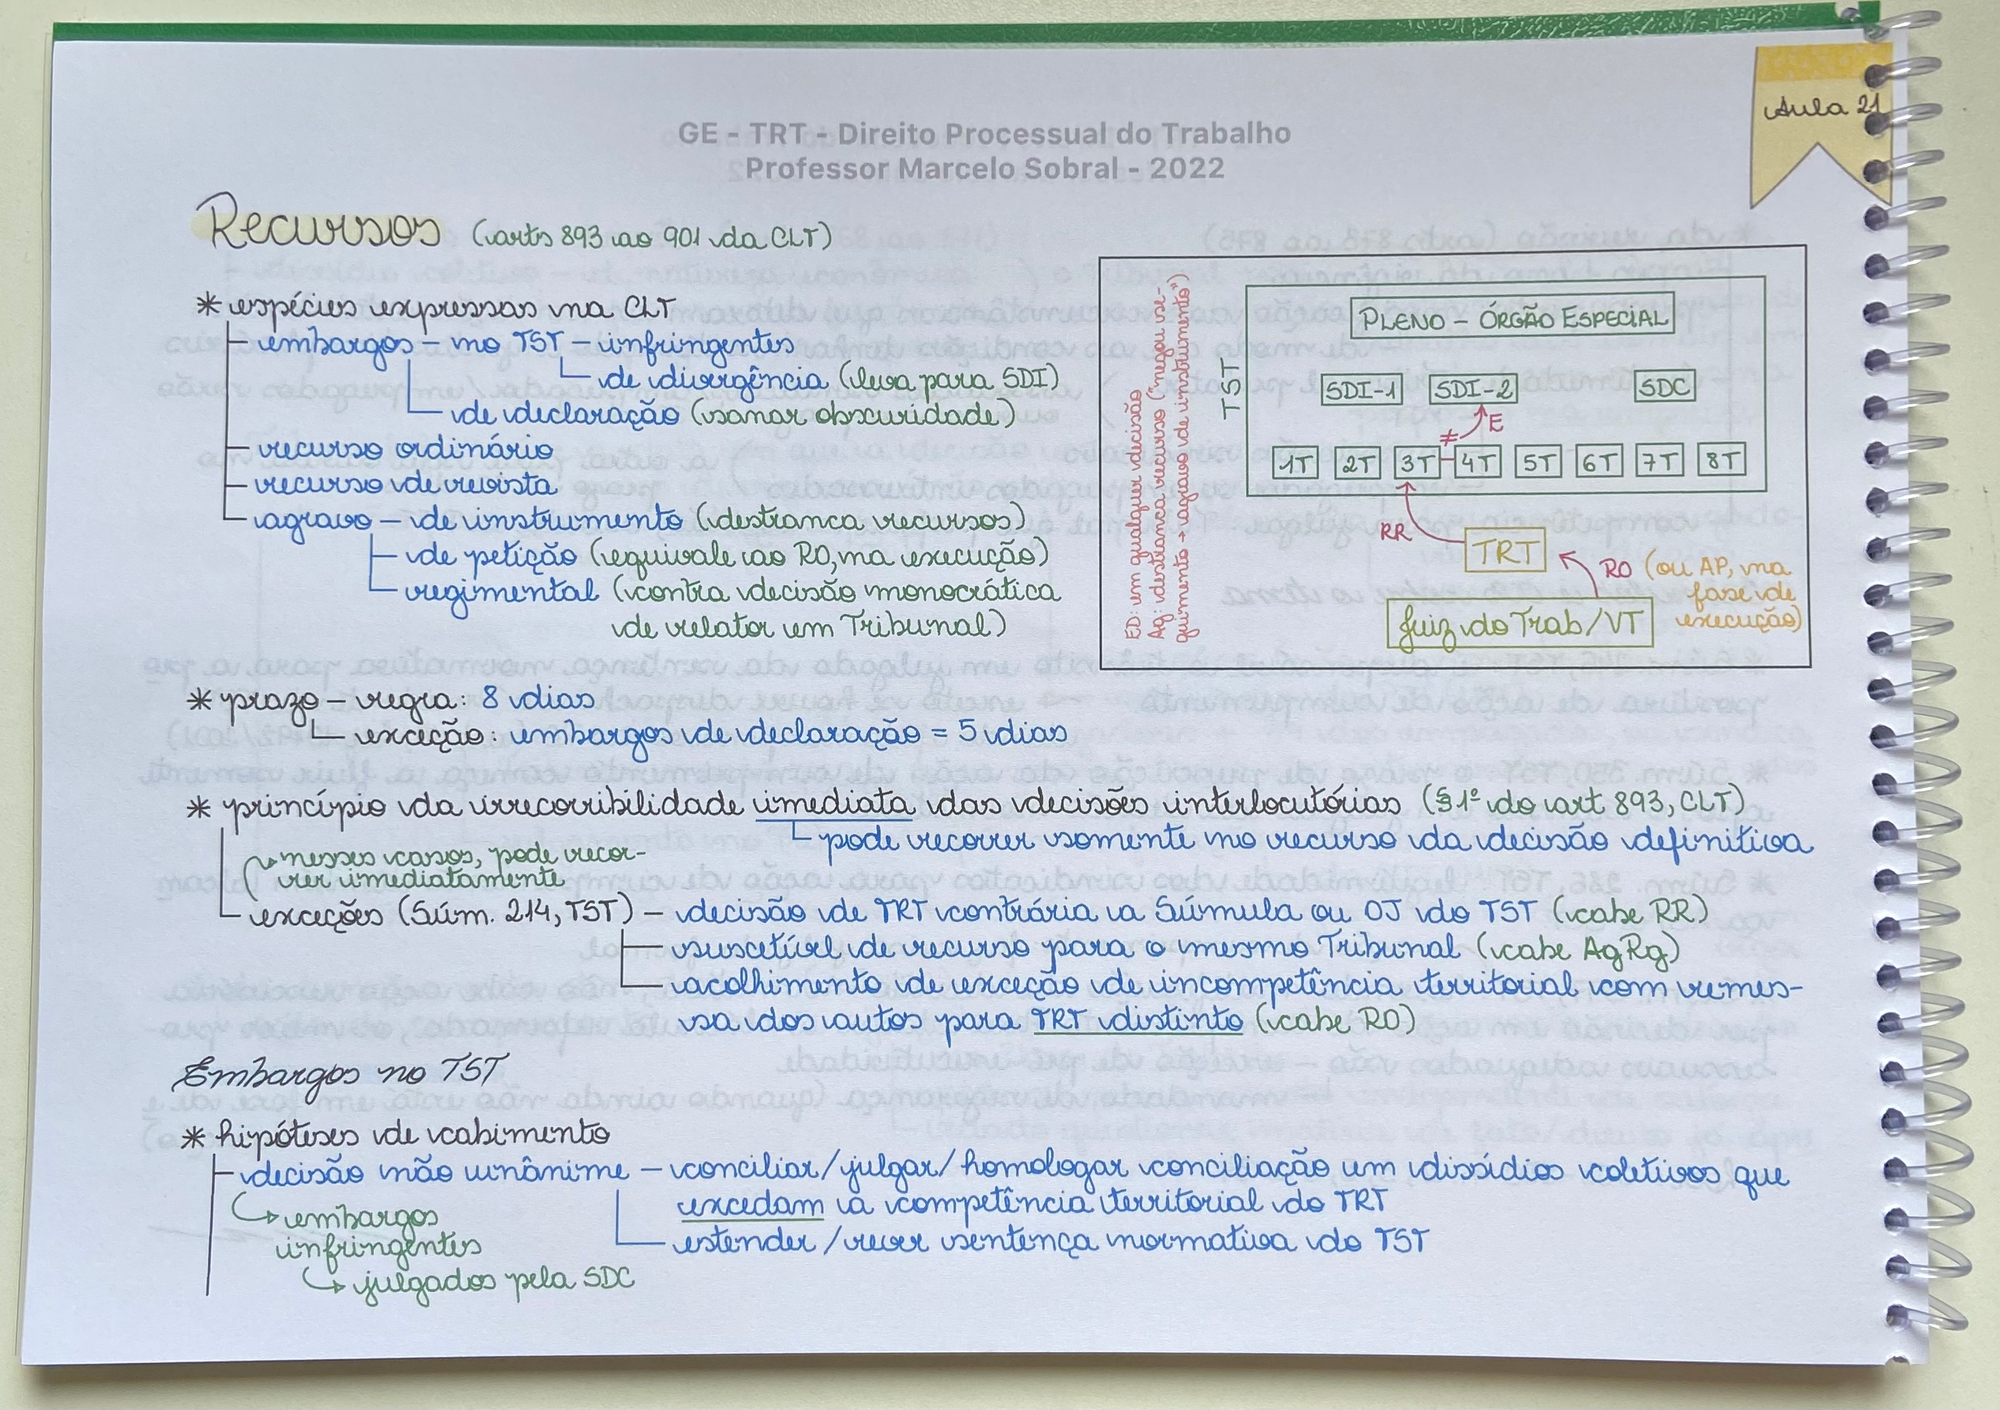 Aula 21
GE - TRT - Direito Processual do Trabalho
Professor Marcelo Sobral - 2022
Recursos (arts 893 ao 901 da CLT)
* espécies expressas na CLT
embargos - no TST - infringentes
de divergência (leva para SDI)
de declaração (sanar obscuridade)
recurso ordinário
recurso de revista
agravo - de instrumento (destranca recursos)
de petição (equivale ao RO, na execução)
regimental (contra decisão monocrática
de relator em Tribunal)
ED: em qualquer decisão
Ag: destranca recurso ("negou se-
guimento → agravo de instrumento")
TST
PLENO - ÓRGÃO ESPECIAL
SDI-1 SDI-2 SDC
≠ E
1T 2T 3T 4T 5T 6T 7T 8T
RR
TRT
RO (ou AP, na
fase de
execução)
Juiz do Trab/VT
* prazo - regra: 8 dias
exceção: embargos de declaração = 5 dias
* princípio da irrecorribilidade imediata das decisões interlocutórias (§1º do art 893, CLT)
pode recorrer somente no recurso da decisão definitiva
nesses casos, pode recor-
rer imediatamente
exceções (Súm. 214, TST) - decisão de TRT contrária a Súmula ou OJ do TST (cabe RR)
suscetível de recurso para o mesmo Tribunal (cabe AgRg)
acolhimento de exceção de incompetência territorial com remes-
sa dos autos para TRT distinto (cabe RO)
Embargos no TST
* hipóteses de cabimento
decisão não unânime - conciliar/julgar/homologar conciliação em dissídios coletivos que
excedam a competência territorial do TRT
estender/rever sentença normativa do TST
↳ embargos
infringentes
↳ julgados pela SDC